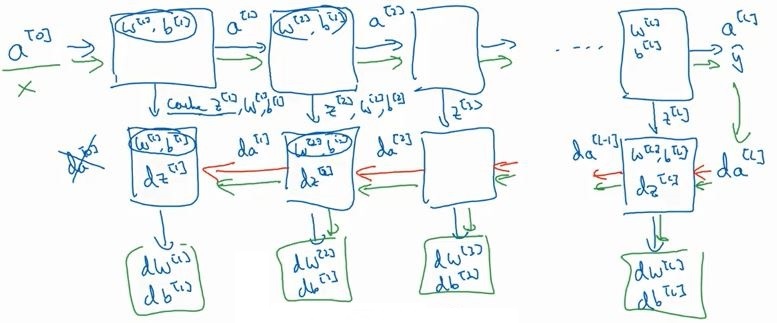 a^[0]
x
w^[1], b^[1]
a^[1]
w^[2], b^[2]
a^[2]
....
w^[L]
b^[L]
a^[L]
ŷ
cache z^[1], w^[1], b^[1]
z^[2], w^[2], b^[2]
z^[3]
z^[L]
da^[0]
w^[1], b^[1]
dz^[1]
da^[1]
w^[2], b^[2]
dz^[2]
da^[2]
da^[L-1]
w^[L], b^[L]
dz^[L]
da^[L]
dw^[1]
db^[1]
dw^[2]
db^[2]
dw^[3]
db^[3]
dw^[L]
db^[L]